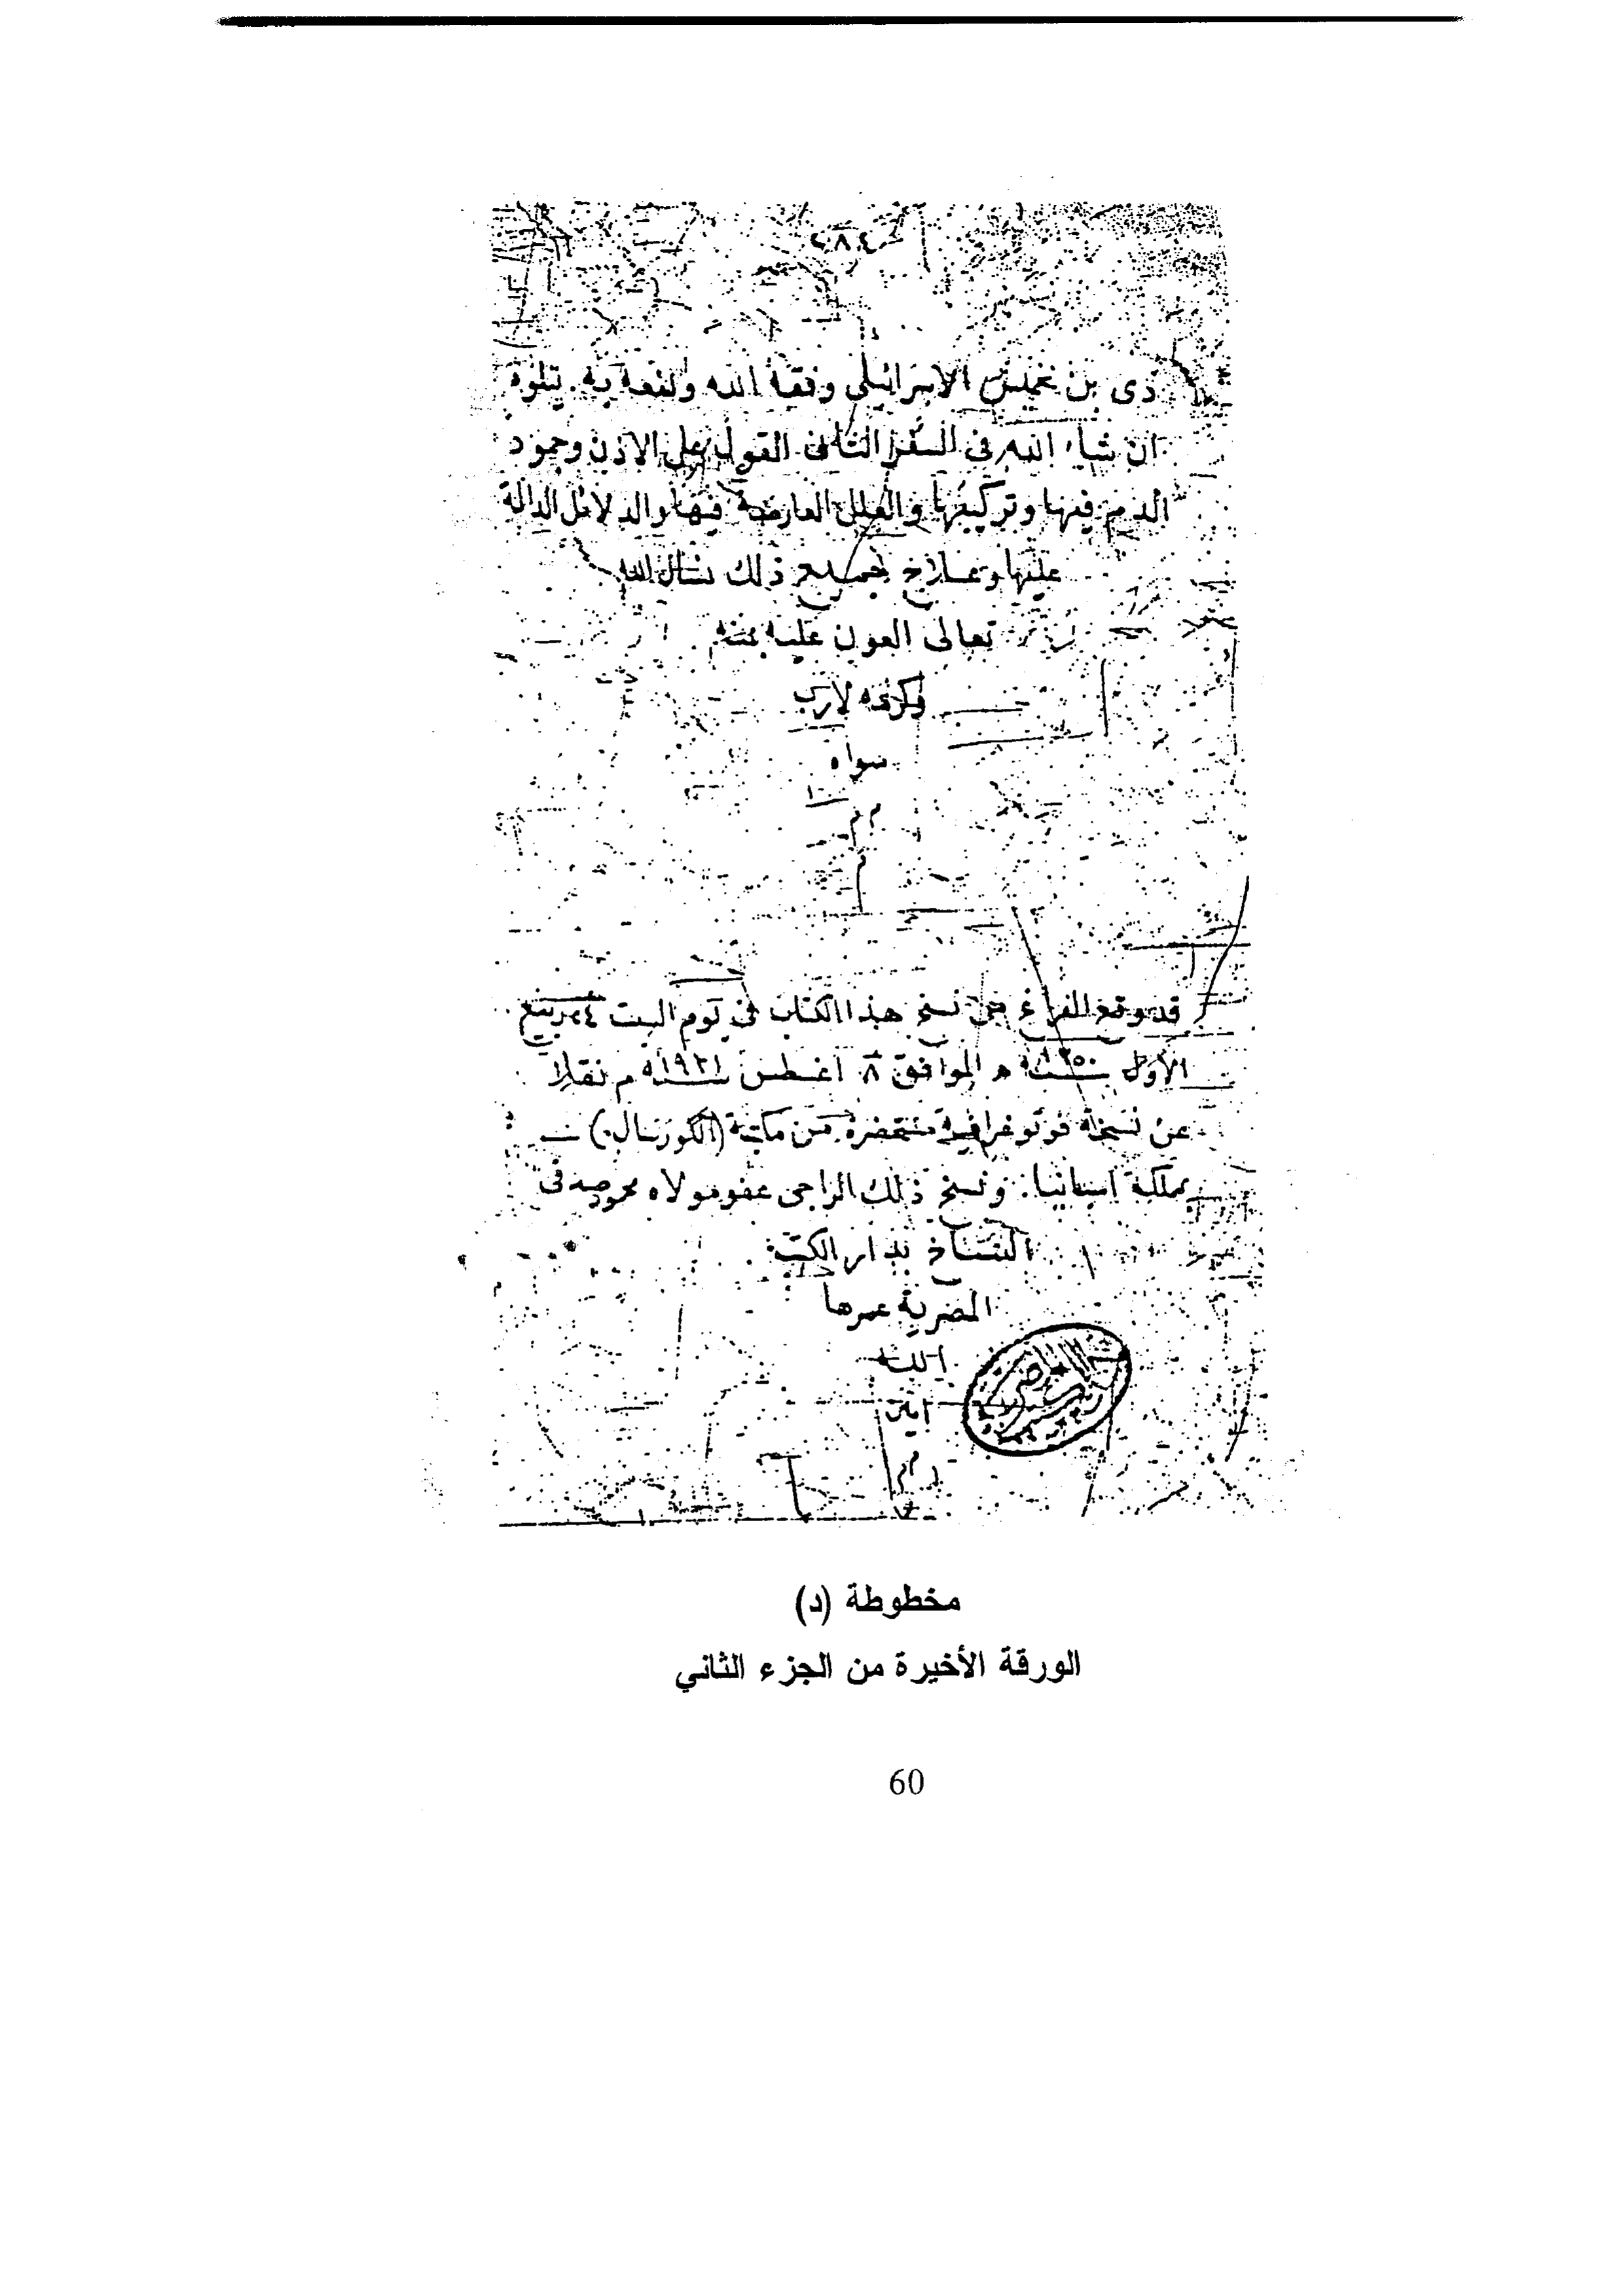 ٢٨٤
دى بن نحميش الاسرائيلى وفقه الله ونفعه به. يتلوه
ان شاء الله فى السفر الثانى القول على الاذن وجمود
الدم فيها وتركيبها والعلل العارضة فيها والدلائل الدالة
عليها وعلاج جميع ذلك نسأل الله
تعالى العون عليه بمنه
وكرمه لا رب
سواه
م م
م
قد وقع الفراغ من نسخ هذا الكتاب فى يوم السبت ٢٤ ربيع
الأول سنة ١٣٥٠ ه الموافق ٨ اغسطس سنة ١٩٣١ م نقلا
عن نسخة فوتوغرافية متحضرة من مكتبة (الكوريال)
بمملكة اسبانيا. ونسخ ذلك الراجى عفو مولاه محمود صدقى
النساخ بدار الكتب
المصرية عمرها
الله
امين
م م
مخطوطة (د)
الورقة الأخيرة من الجزء الثاني
60